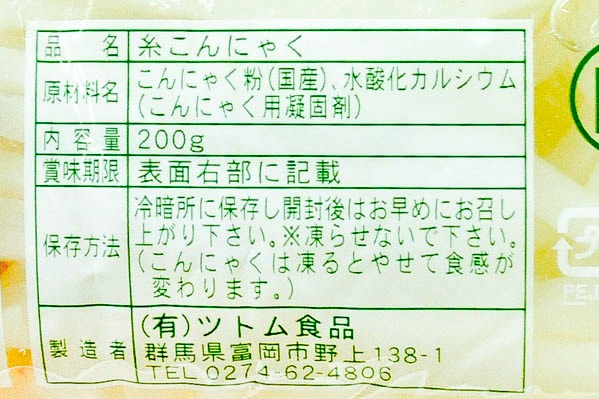 品名 糸こんにゃく
原材料名 こんにゃく粉(国産)、水酸化カルシウム
(こんにゃく用凝固剤)
内容量 200g
賞味期限 表面右部に記載
保存方法 冷暗所に保存し開封後はお早めにお召し
上がり下さい。※凍らせないで下さい。
(こんにゃくは凍るとやせて食感が
変わります。)
製造者 (有)ツトム食品
群馬県富岡市野上138-1
TEL 0274-62-4806